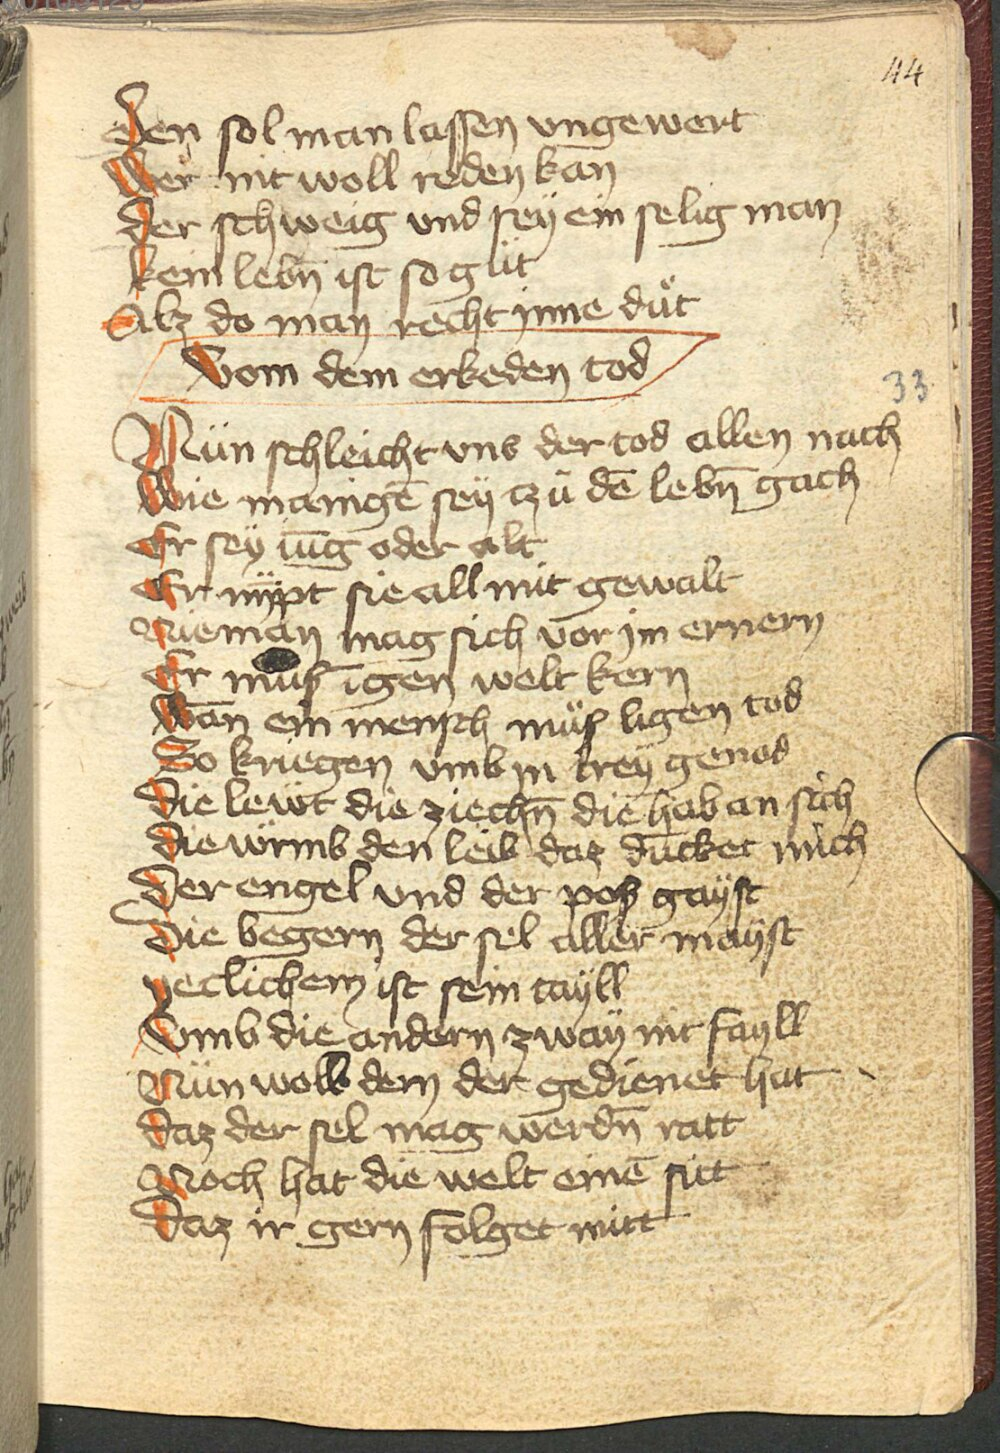 44
Den sol man lassen vngewert
Wer nit woll reden kan
Der schweig vnd seÿ ein selig man
kein lebn̄ ist so güt
Alz do man recht jnne dut
Vom dem erkeden tod
33
Nün schleicht vns der tod allen nach
Wie manigē seÿ czü dē lebn̄ gach
Er seÿ iūg oder alt
Er nÿpt sie all mit gewalt
Nieman mag sich vor jm ernern
Er muß īgen welt kern
Wan ein mensch müß ligen tod
So kriegen vmb in treÿ genod
Die lewt die ziechn̄ die hab an sich
die würmb den leib daz duncket mich
Der engel vnd der poß gaÿst
Die begern der sel aller maÿst
yeclichem ist sein taÿll
Vmb die andern zwaÿ nit faÿll
Nün woll dem der gedienet hat
daz der sel mag werdn̄ ratt
Noch hat die welt einē sitt
Daz ir gern folget mitt